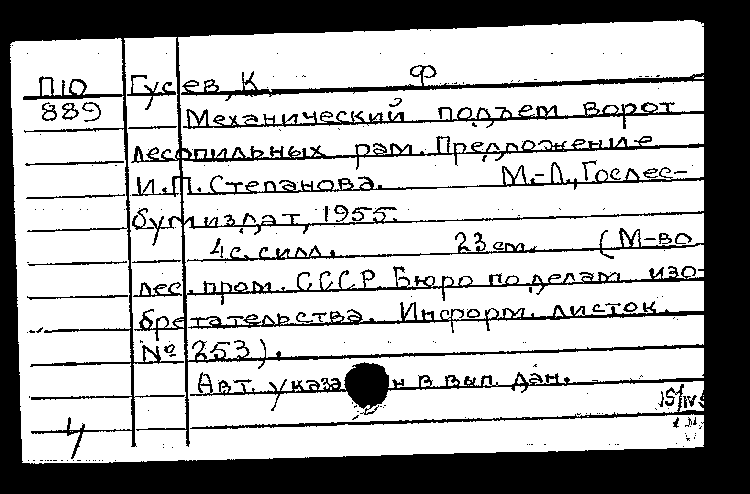 П10 Гусев, К. Ф
889 Механический подъем ворот
лесопильных рам. Предложение
И.П. Степанова. М.-Л., Гослес-
бумиздат, 1955.
4 с. с илл. 23 см. (М-во
лес. пром. СССР. Бюро по делам изо-
бретательства. Информ. листок.
№ 253).
Авт. указан в вып. дан.
15/IV
4